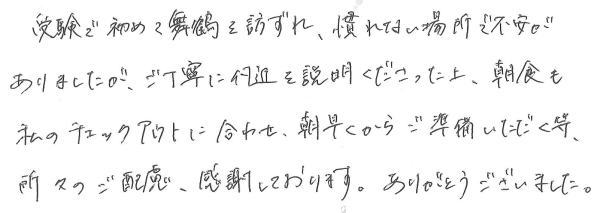 受験で初めて舞鶴を訪ずれ、慣れない場所で不安が
ありましたが、ご丁寧に付近を説明くださった上、朝食も
私のチェックアウトに合わせ、朝早くからご準備いただく等、
所々のご配慮、感謝しております。ありがとうございました。